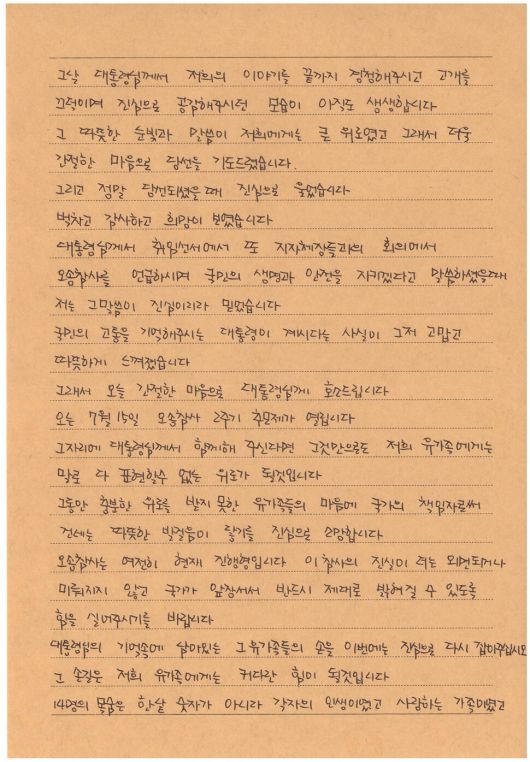 그날 대통령님께서 저희의 이야기를 끝까지 경청해주시고 고개를
끄덕이며 진심으로 공감해주시던 모습이 아직도 생생합니다
그 따뜻한 눈빛과 말씀이 저희에게는 큰 위로였고 그래서 더욱
간절한 마음으로 당선을 기도드렸습니다.
그리고 정말 당선되셨을때 진심으로 울었습니다
벅차고 감사하고 희망이 보였습니다
대통령님께서 취임선서에서 또 지자체장들과의 회의에서
오송참사를 언급하시며 국민의 생명과 안전을 지키겠다고 말씀하셨을때
저는 그말씀이 진심이리라 믿었습니다
국민의 고통을 기억해주시는 대통령이 계시다는 사실이 그저 고맙고
따뜻하게 느껴졌습니다
그래서 오늘 간절한 마음으로 대통령님께 호소드립니다
오는 7월 15일 오송참사 2주기 추모제가 열립니다
그자리에 대통령님께서 함께해 주신다면 그것만으로도 저희 유가족에게는
말로 다 표현할수 없는 위로가 될것입니다
그동안 충분한 위로를 받지 못한 유가족들의 마음에 국가의 책임자로써
건네는 따뜻한 발걸음이 닿기를 진심으로 소망합니다
오송참사는 여전히 현재 진행형입니다 이 참사의 진실이 더는 외면되거나
미뤄지지 않고 국가가 앞장서서 반드시 제대로 밝혀질 수 있도록
힘을 실어주시기를 바랍니다
대통령님의 기억속에 남아있는 그 유가족들의 손을 이번에는 진심으로 다시 잡아주십시오
그 손길은 저희 유가족에게는 커다란 힘이 될것입니다
14명의 목숨은 한낱 숫자가 아니라 각자의 인생이였고 사랑하는 가족이였고